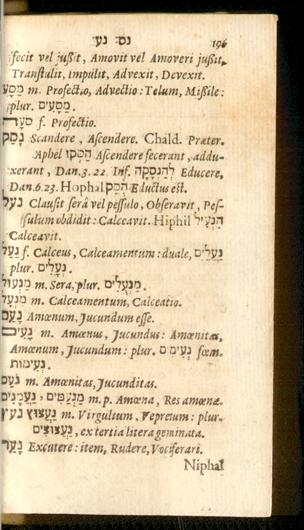 נס- נע- 196
fecit vel jussit, Amovit vel Amoveri jussit,
Transtulit, Impulit, Advexit, Devexit.
מַסָּע m. Profectio, Advectio: Telum, Missile:
plur. מַסָּעִים.
f. Profectio.
נָסַק Scandere, Ascendere. Chald. Præter.
Aphel הַסִּקוּ Ascendere fecerant, addu-
xerant, Dan. 3. 22. Inf. לְהַנְסָקָה Educere,
Dan. 6. 23. Hophal הֻסַּק Eductus est.
נעל Clausit serâ vel pessulo, Obseravit, Pes-
sulum obdidit: Calceavit. Hiphil הִנְעִיל
Calceavit.
נַעַל f. Calceus, Calceamentum: duale, נַעֲלַיִם
plur. נְעָלִים.
מַנְעוּל m. Sera, plur. מַנְעוּלִים.
מִנְעָל m. Calceamentum, Calceatio.
נָעֵם Amœnum, Jucundum esse.
נָעִים m. Amœnus, Jucundus: Amœnitas,
Amœnum, Jucundum: plur. נְעִימִים fœm.
נְעִימוֹת.
נֹעַם m. Amœnitas, Jucunditas.
נַעֲמָנִים, מַנְעַמִּים m. p. Amœna, Res amœnæ.
נעץ נַעֲצוּץ m. Virgultum, Vepretum: plur.
נַעֲצוּצִים, ex tertia litera geminata.
נָעַר Excutere: item, Rudere, Vociferari.
Niphal